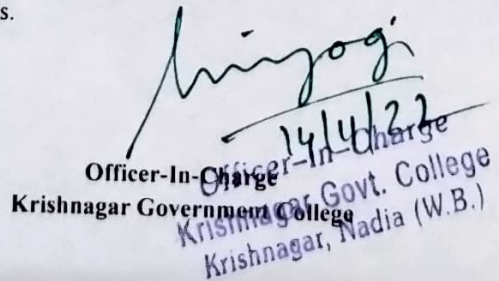 s.
14/4/22
Officer-In-Charge
Krishnagar Government College
Officer-In-Charge
Krishnagar Govt. College
Krishnagar, Nadia (W.B.)